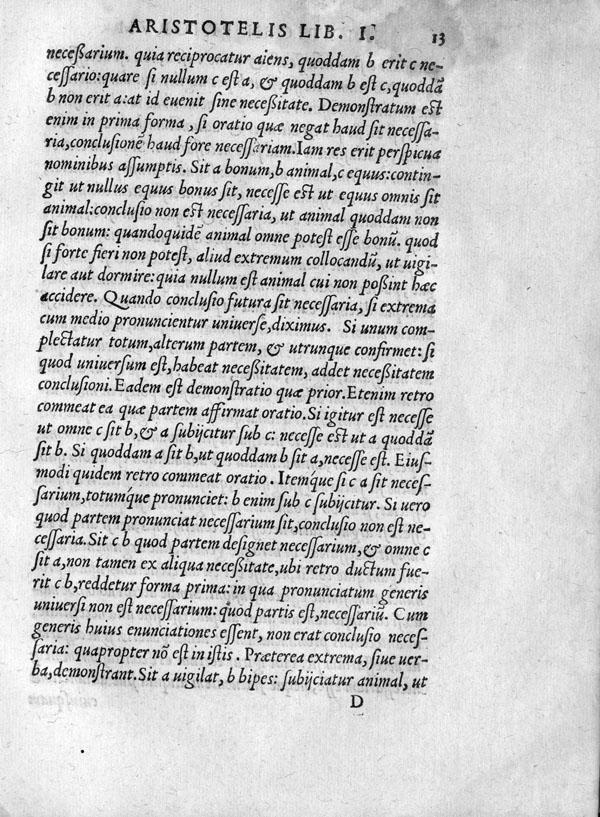 ARISTOTELIS LIB. I. 13
neceßarium. quia reciprocatur aiens, quoddam b erit c ne-
cessario: quare si nullum c est a, & quoddam b est c, quoddā
b non erit a: at id euenit sine neceßitate. Demonstratum est
enim in prima forma, si oratio quæ negat haud sit necessa-
ria, conclusionē haud fore necessariam. Iam res erit perspicua
nominibus assumptis. Sit a bonum, b animal, c equus: contin-
git ut nullus equus bonus sit, necesse est ut equus omnis sit
animal: conclusio non est necessaria, ut animal quoddam non
sit bonum: quandoquidē animal omne potest esse bonū. quod
si forte fieri non potest, aliud extremum collocandū, ut uigi-
lare aut dormire: quia nullum est animal cui non poßint hæc
accidere. Quando conclusio futura sit necessaria, si extrema
cum medio pronuncientur uniuerse, diximus. Si unum com-
plectatur totum, alterum partem, & utrunque confirmet: si
quod uniuersum est, habeat neceßitatem, addet neceßitatem
conclusioni. Eadem est demonstratio quæ prior. Etenim retro
commeat ea quæ partem affirmat oratio. Si igitur est necesse
ut omne c sit b, & a subijcitur sub c: necesse est ut a quoddā
sit b. Si quoddam a sit b, ut quoddam b sit a, necesse est. Eius-
modi quidem retro commeat oratio. Itemq́ue si c a sit neces-
sarium, totumq́ue pronunciet: b enim sub c subijcitur. Si uero
quod partem pronunciat necessarium sit, conclusio non est ne-
cessaria. Sit c b quod partem designet necessarium, & omne c
sit a, non tamen ex aliqua neceßitate, ubi retro ductum fue-
rit c b, reddetur forma prima: in qua pronunciatum generis
uniuersi non est necessarium: quod partis est, necessariū. Cum
generis huius enunciationes essent, non erat conclusio neces-
saria: quapropter nō est in istis. Præterea extrema, siue uer-
ba, demonstrant. Sit a uigilat, b bipes: subijciatur animal, ut
D